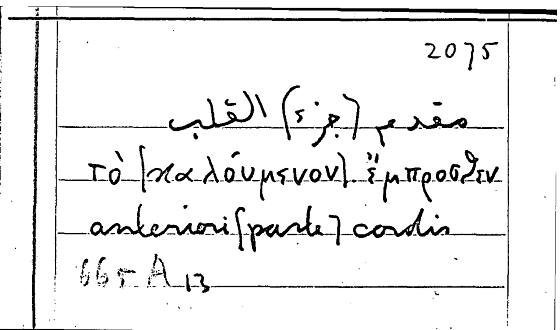 2075
مقدم (جزء) القلب
τὸ [καλούμενον] ἔμπροσθεν
anteriori [parte] cordis
665 A 13